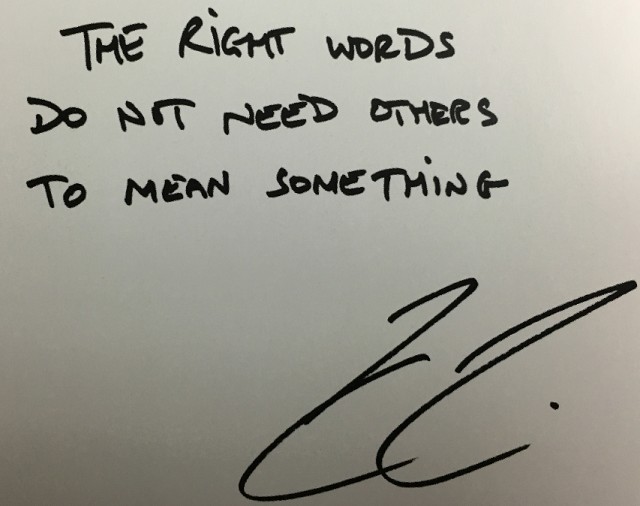 THE RIGHT WORDS
DO NOT NEED OTHERS
TO MEAN SOMETHING